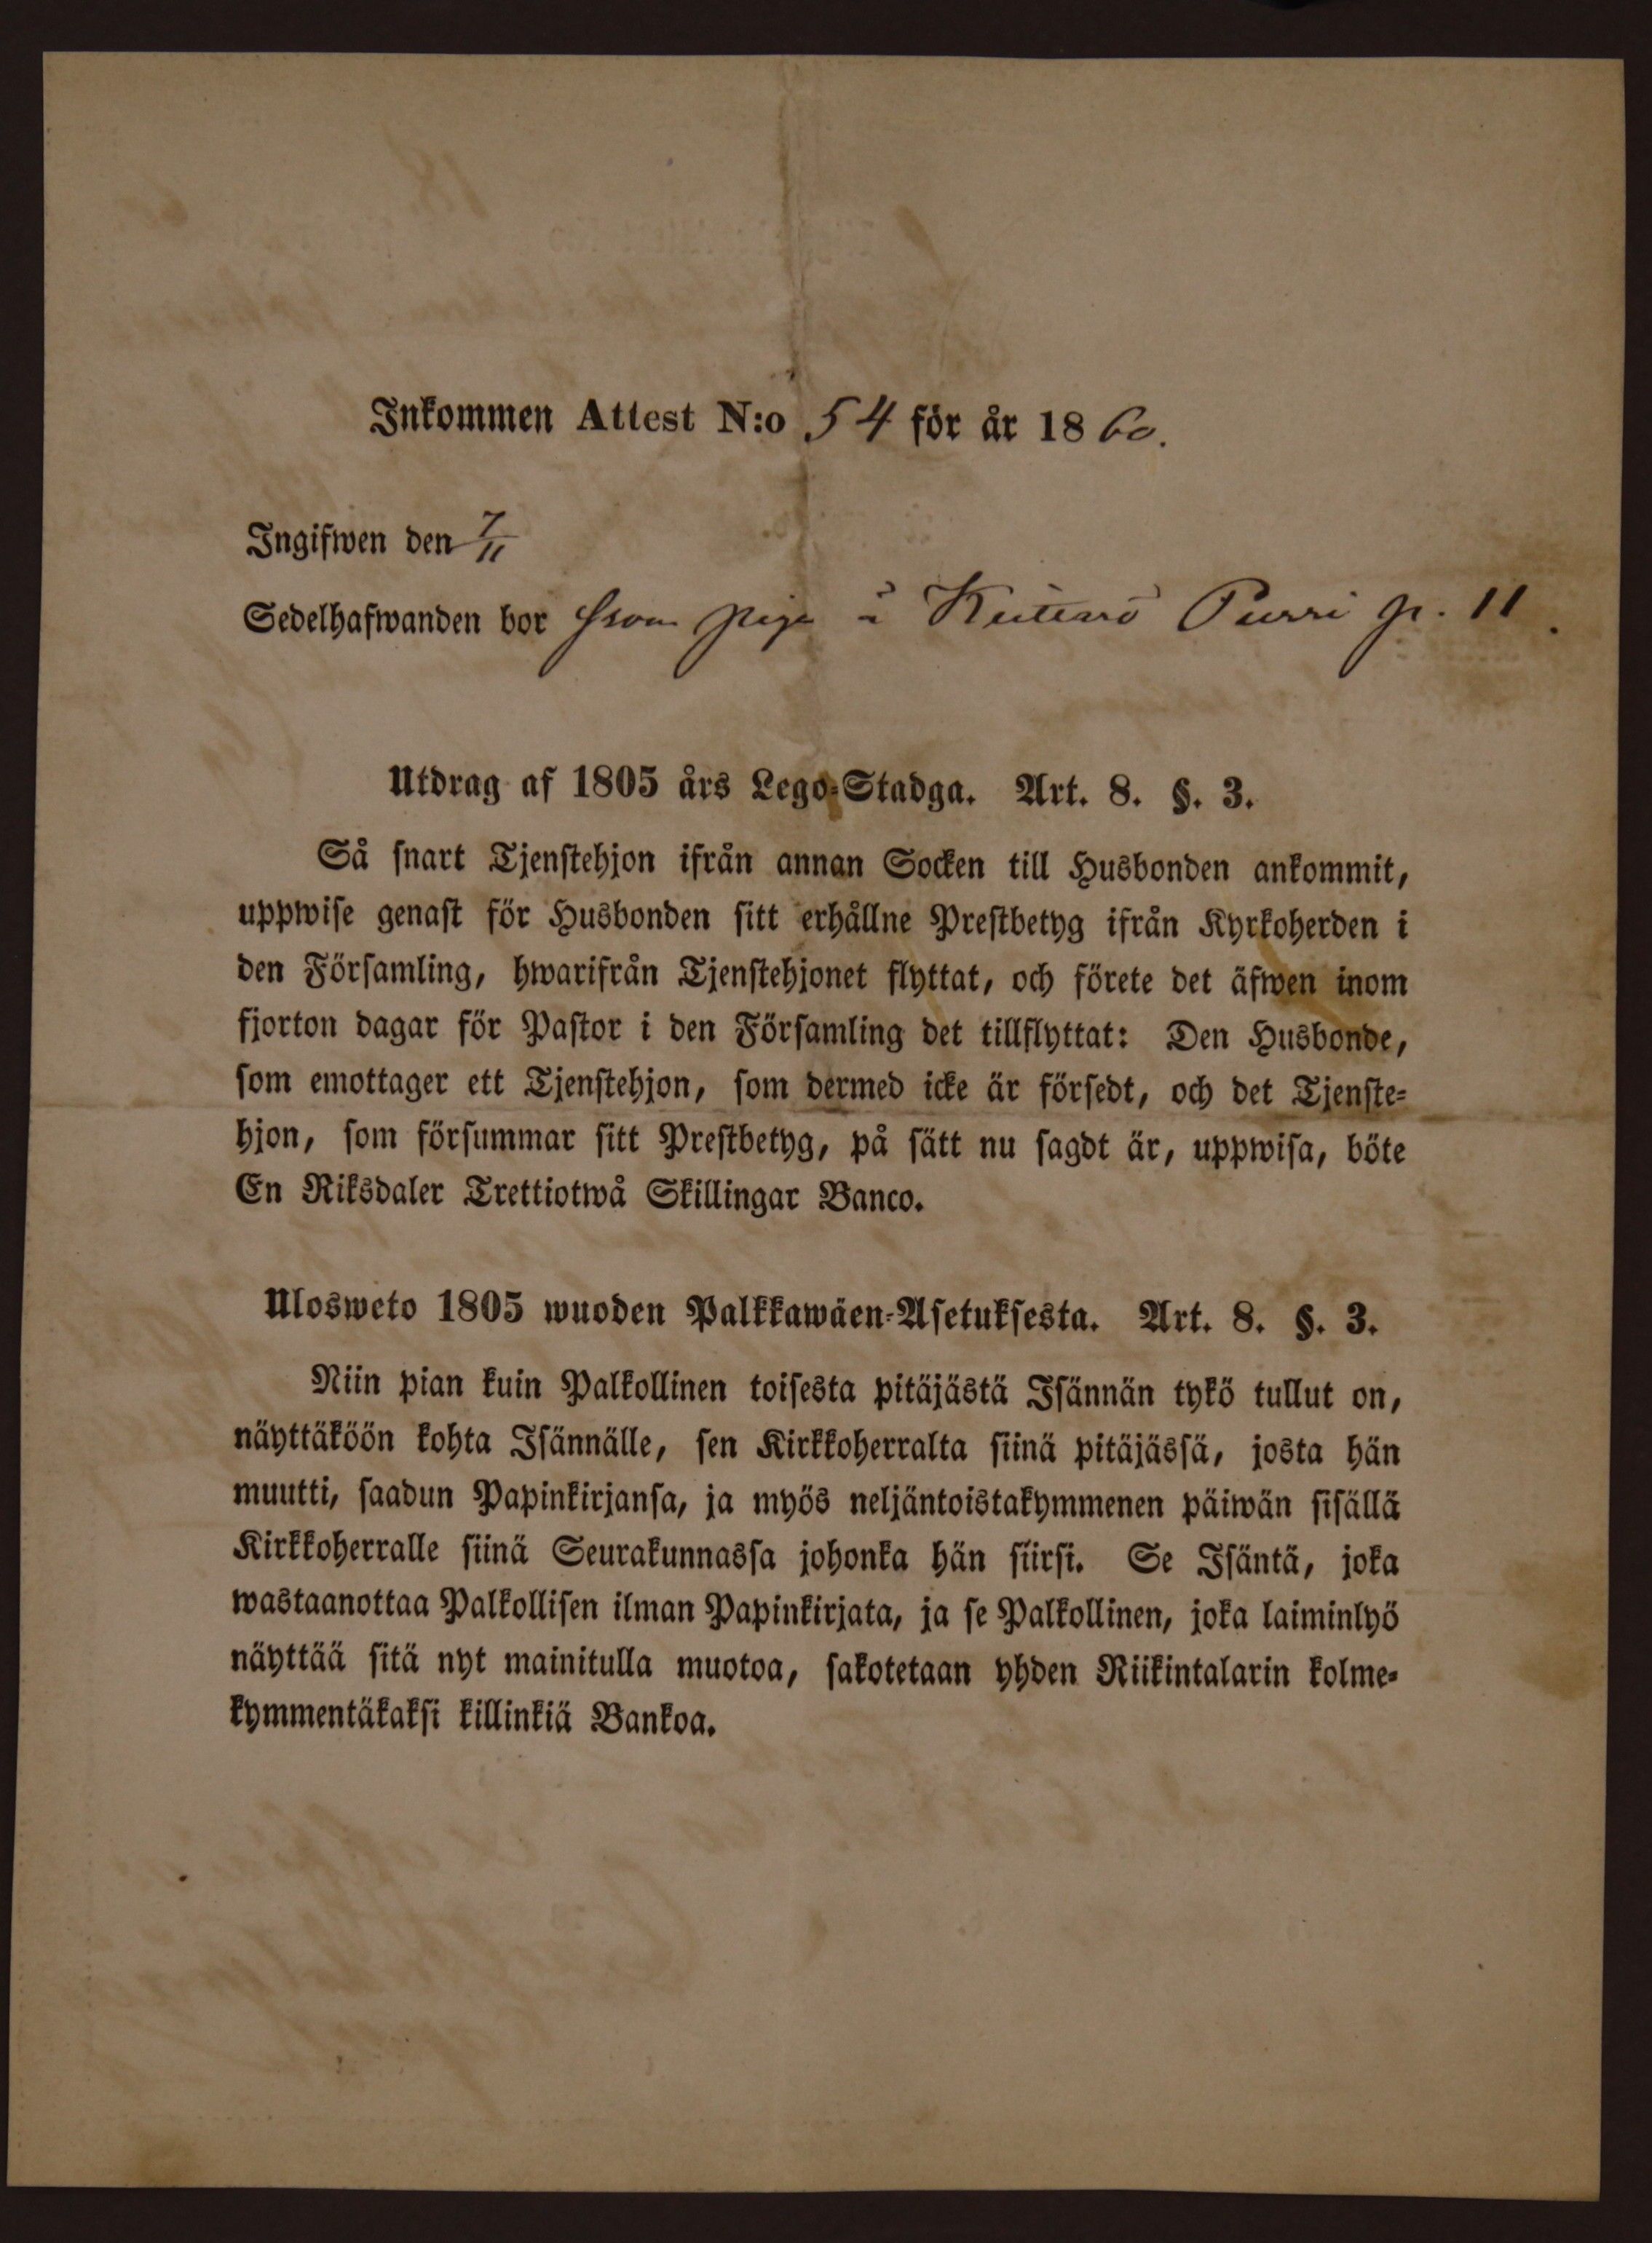 Inkommen Attest N:o 54 för år 1860.
Ingifwen den 7/11
Sedelhafwanden bor som piga å Purri p. 11.
Utdrag af 1805 års Lego-Stadga. Art. 8. §. 3.
Så snart Tjenstehjon ifrån annan Socken till Husbonden ankommit,
uppwise genast för Husbonden sitt erhållne Prestbetyg ifrån Kyrkoherden i
den Församling, hwarifrån Tjenstehjonet flyttat, och förete det äfwen inom
fjorton dagar för Pastor i den Församling det tillflyttat: Den Husbonde,
som emottager ett Tjenstehjon, som dermed icke är försedt, och det Tjenste-
hjon, som försummar sitt Prestbetyg, på sätt nu sagdt är, uppwisa, böte
En Riksdaler Trettiotwå Skillingar Banco.
Ulosweto 1805 wuoden Palkkawäen-Asetuksesta. Art. 8. §. 3.
Niin pian kuin Palkollinen toisesta pitäjästä Isännän tykö tullut on,
näyttäköön kohta Isännälle, sen Kirkkoherralta siinä pitäjässä, josta hän
muutti, saadun Papinkirjansa, ja myös neljäntoistakymmenen päiwän sisällä
Kirkkoherralle siinä Seurakunnassa johonka hän siirsi. Se Isäntä, joka
wastaanottaa Palkollisen ilman Papinkirjata, ja se Palkollinen, joka laiminlyö
näyttää sitä nyt mainitulla muotoa, sakotetaan yhden Riikintalarin kolme-
kymmentäkaksi killinkiä Bankoa.